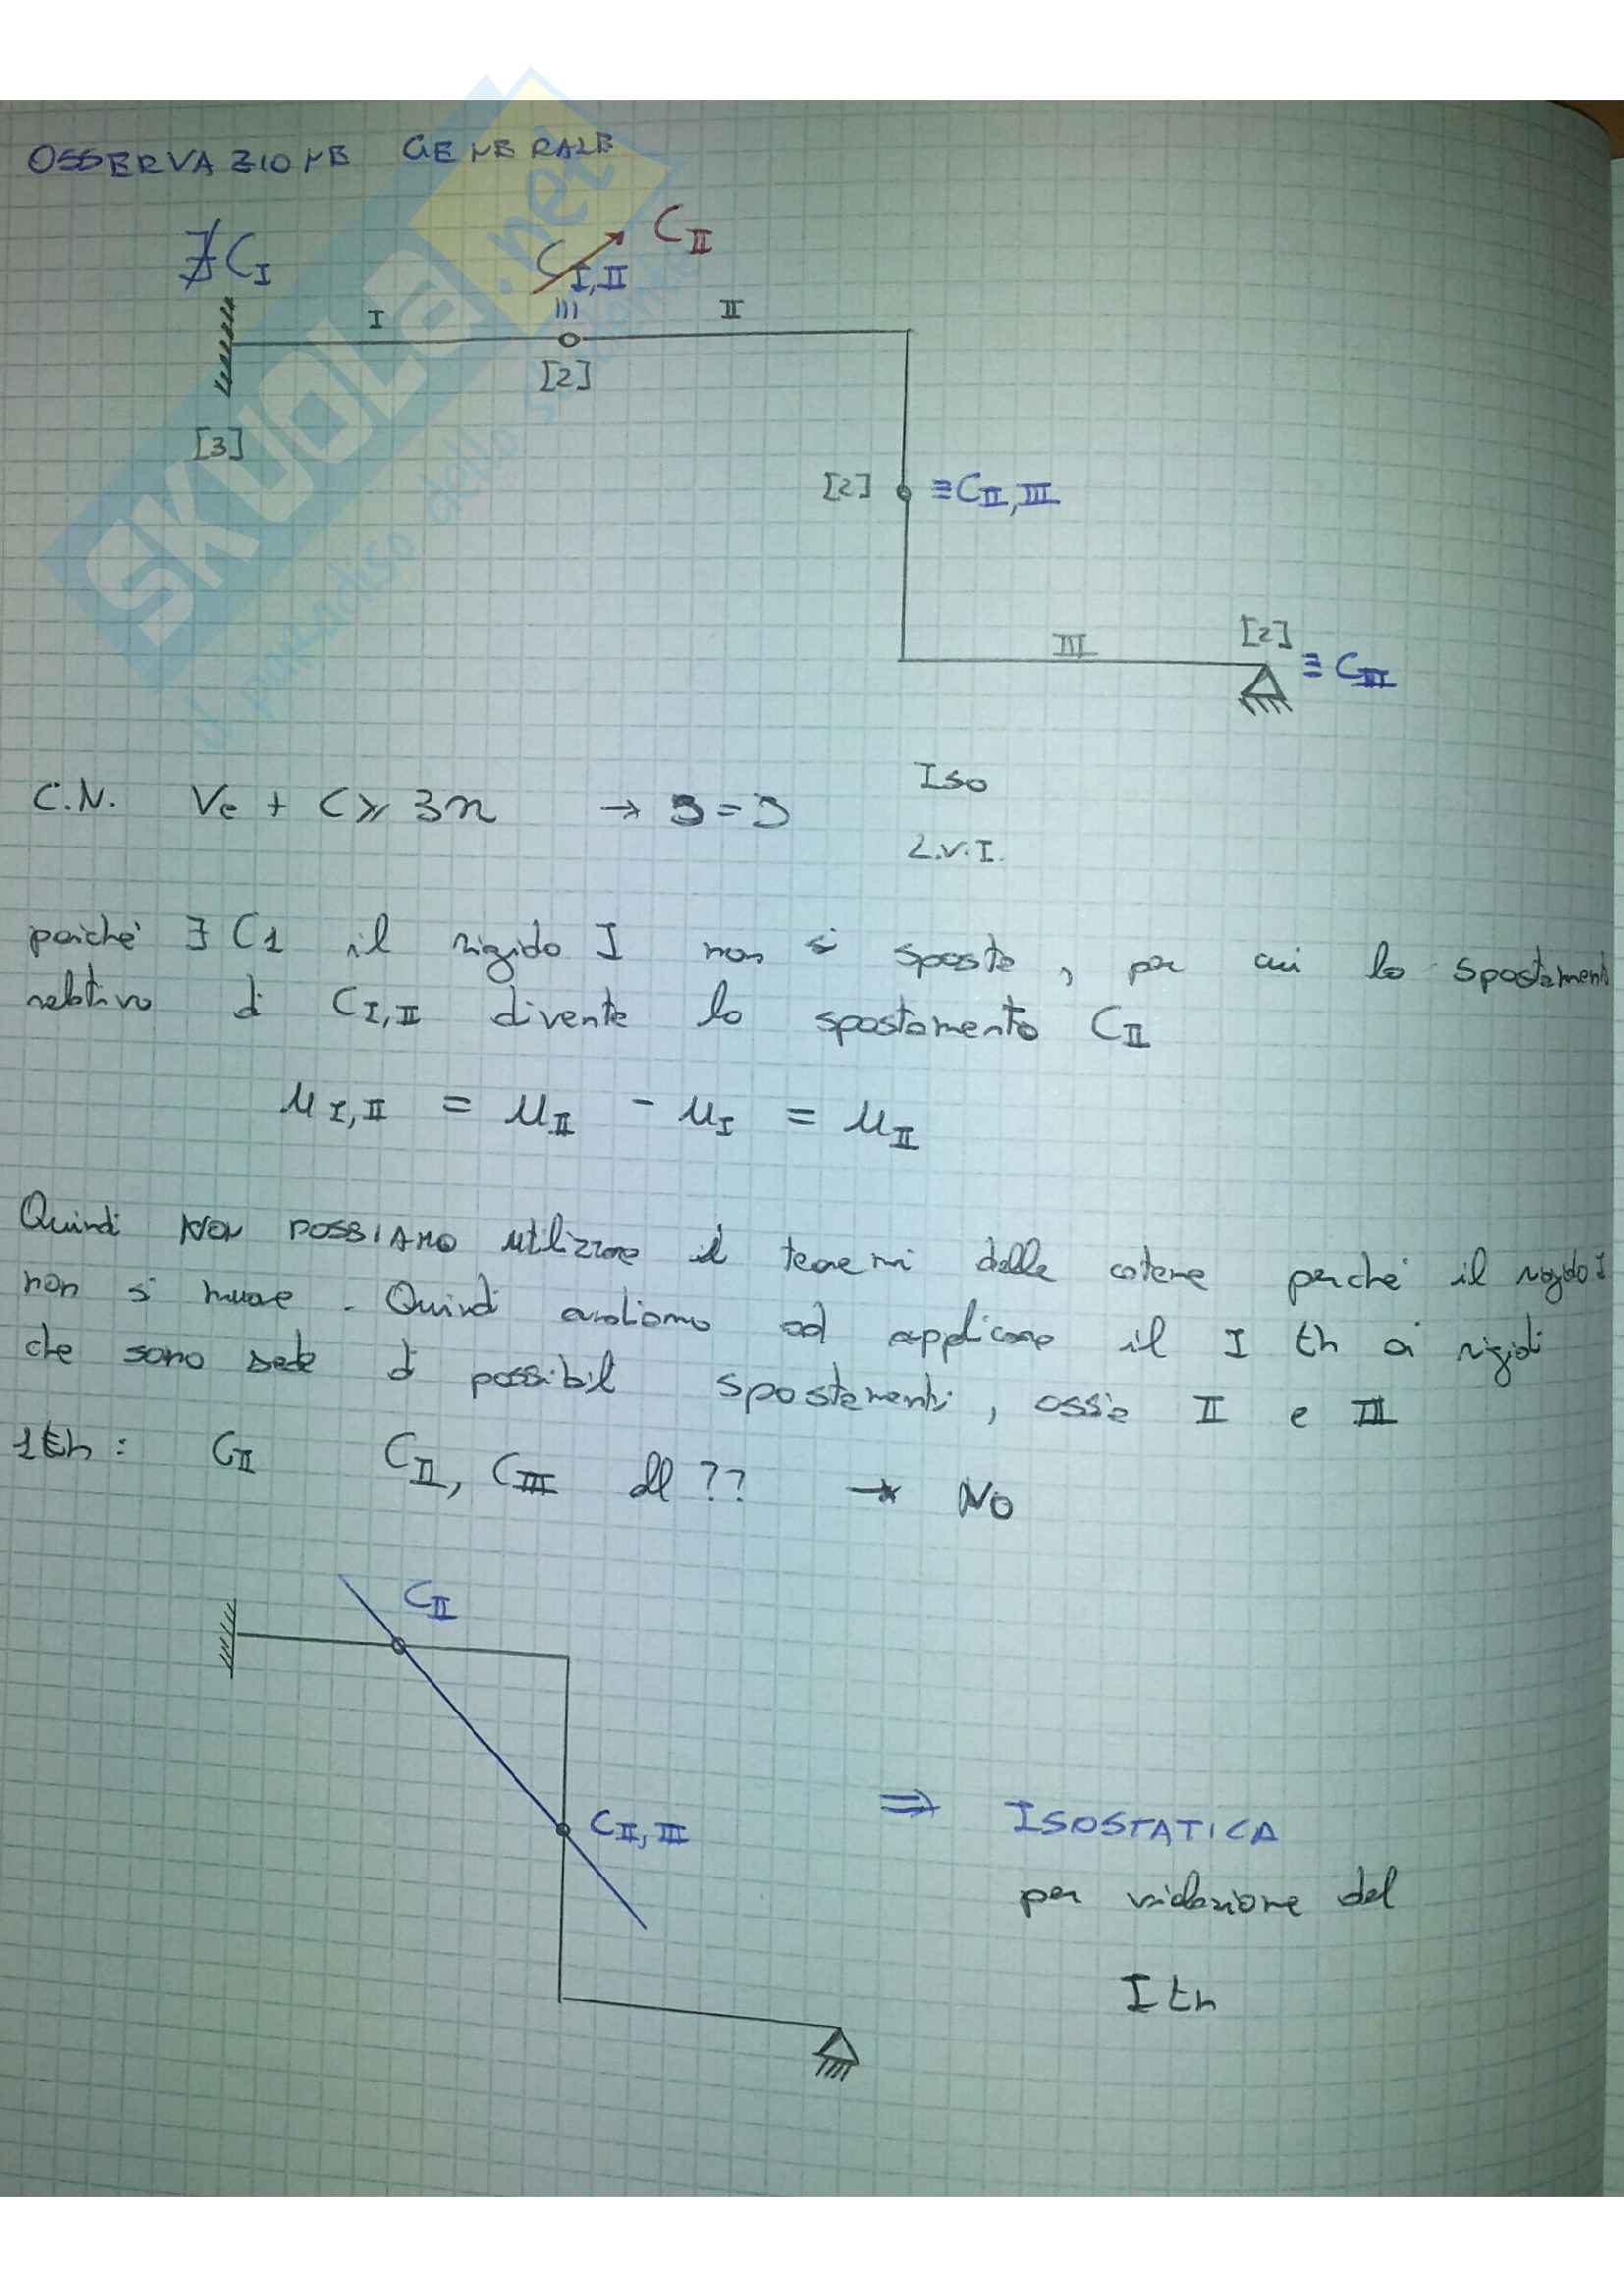 OSSERVAZIONE GENERALE
∄ C_I
C_I,II
C_II
I
II
[3]
[2]
[2] ≡ C_II,III
III
[2] ≡ C_III
C.N. Ve + C ≥ 3n → 9 = 9
Iso
L.V.I.
poiché ∃ C1 il rigido I non si sposta, per cui lo spostamento
relativo di C_I,II diventa lo spostamento C_II
u_I,II = u_II - u_I = u_II
Quindi NON POSSIAMO utilizzare il teoremi delle catene perché il rigido I
non si muove. Quindi andiamo ad applicare il I th ai rigidi
che sono sede di possibili spostamenti, ossia II e III
1th: C_II C_II, C_III all ?? → No
C_II
C_II,III
⇒ ISOSTATICA
per violazione del
I th
SKUOLA.net
il paradiso dello studente